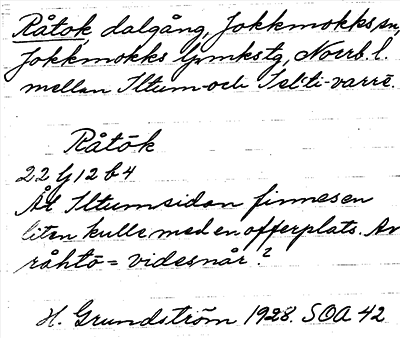 Råtok, dalgång, Jokkmokks sn,
Jokkmokks lpmkstg, Norrb. l.
mellan Iltum- och Isl:ti-varrē.
Råtōk
22 g 12 b 4
Åt Iltumsidan finnes en
liten kulle med en offerplats. Av
råhtō = videsnår?
H. Grundström 1928. SOA 42